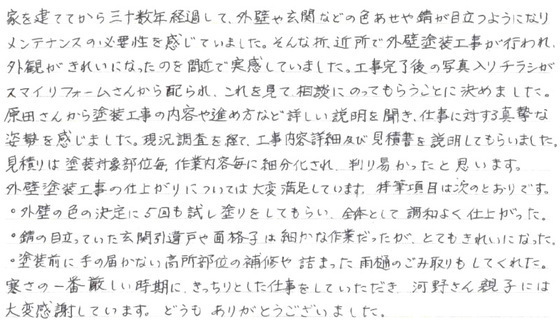 家を建ててから三十数年経過して、外壁や玄関などの色あせや錆が目立つようになり
メンテナンスの必要性を感じていました。そんな折、近所で外壁塗装工事が行われ、
外観がきれいになったのを間近で実感していました。工事完了後の写真入りチラシが
スマイリフォームさんから配られ、これを見て相談にのってもらうことに決めました。
原田さんから塗装工事の内容や進め方など詳しい説明を聞き、仕事に対する真摯な
姿勢を感じました。現況調査を経て、工事内容詳細及び見積書を説明してもらいました。
見積りは塗装対象部位毎、作業内容毎に細分化され、判り易かったと思います。
外壁塗装工事の仕上がりについては大変満足しています。特筆項目は次のとおりです。
・外壁の色の決定に5回も試し塗りをしてもらい、全体として調和よく仕上がった。
・錆の目立っていた玄関引違戸や面格子は細かな作業だったが、とてもきれいになった。
・塗装前に手の届かない高所部位の補修や詰まった雨樋のごみ取りもしてくれた。
寒さの一番厳しい時期に、きっちりとした仕事をしていただき、河野さん親子には
大変感謝しています。どうもありがとうございました。